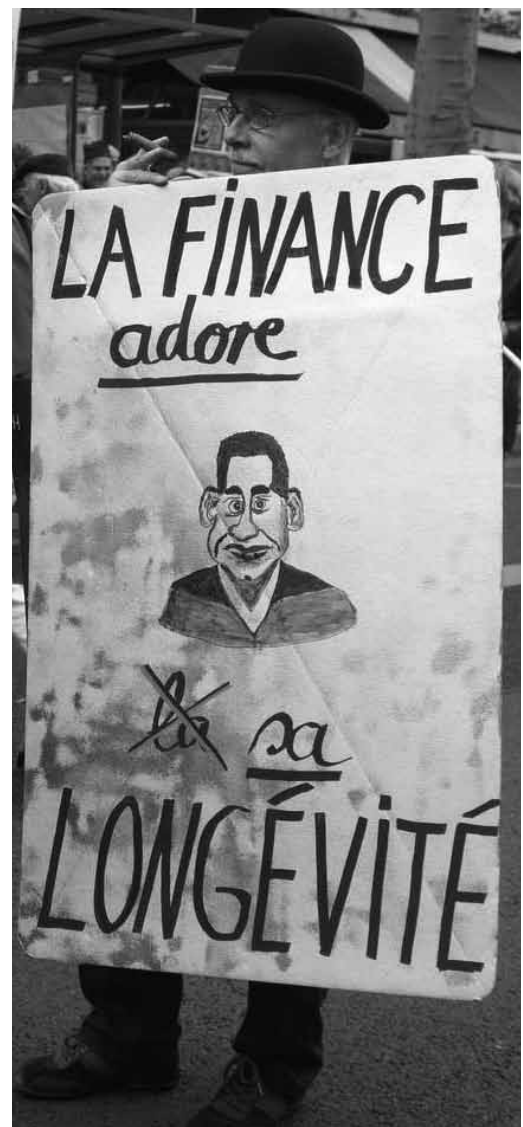 LA FiNANCE
adore
la sa
LONGÉViTÉ